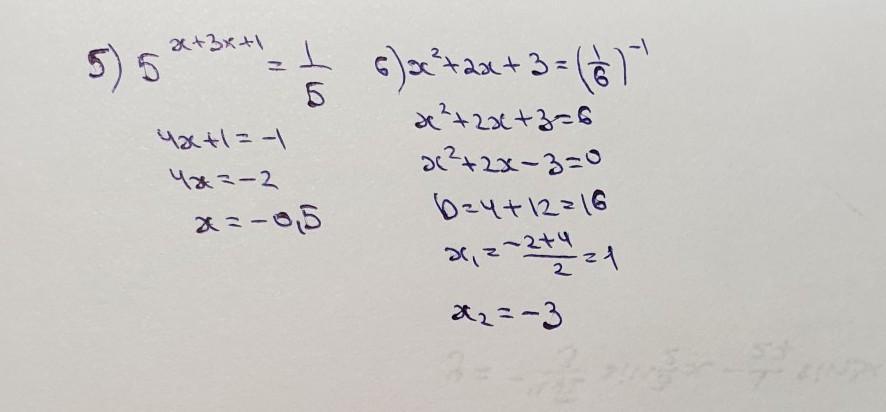 5) 5^{x+3x+1} = 1/5
4x+1=-1
4x=-2
x=-0,5
6) x²+2x+3=(1/6)^{-1}
x²+2x+3=6
x²+2x-3=0
D=4+12=16
x₁=(-2+4)/2=1
x₂=-3